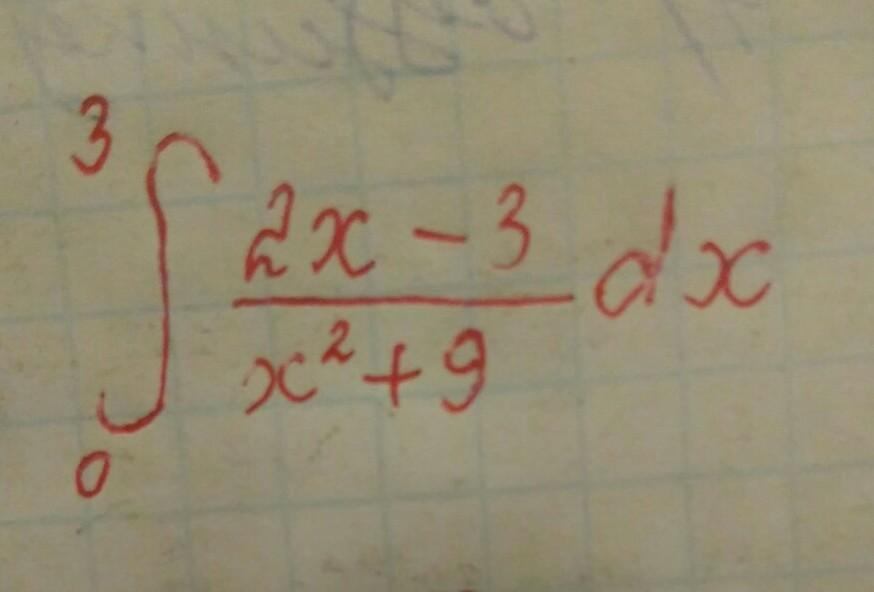 ∫₀³ (2x - 3)/(x² + 9) dx